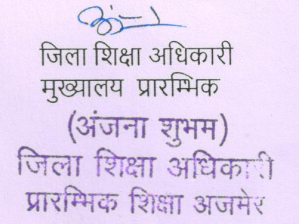 जिला शिक्षा अधिकारी
मुख्यालय प्रारम्भिक
(अंजना शुभम)
जिला शिक्षा अधिकारी
प्रारम्भिक शिक्षा अजमेर